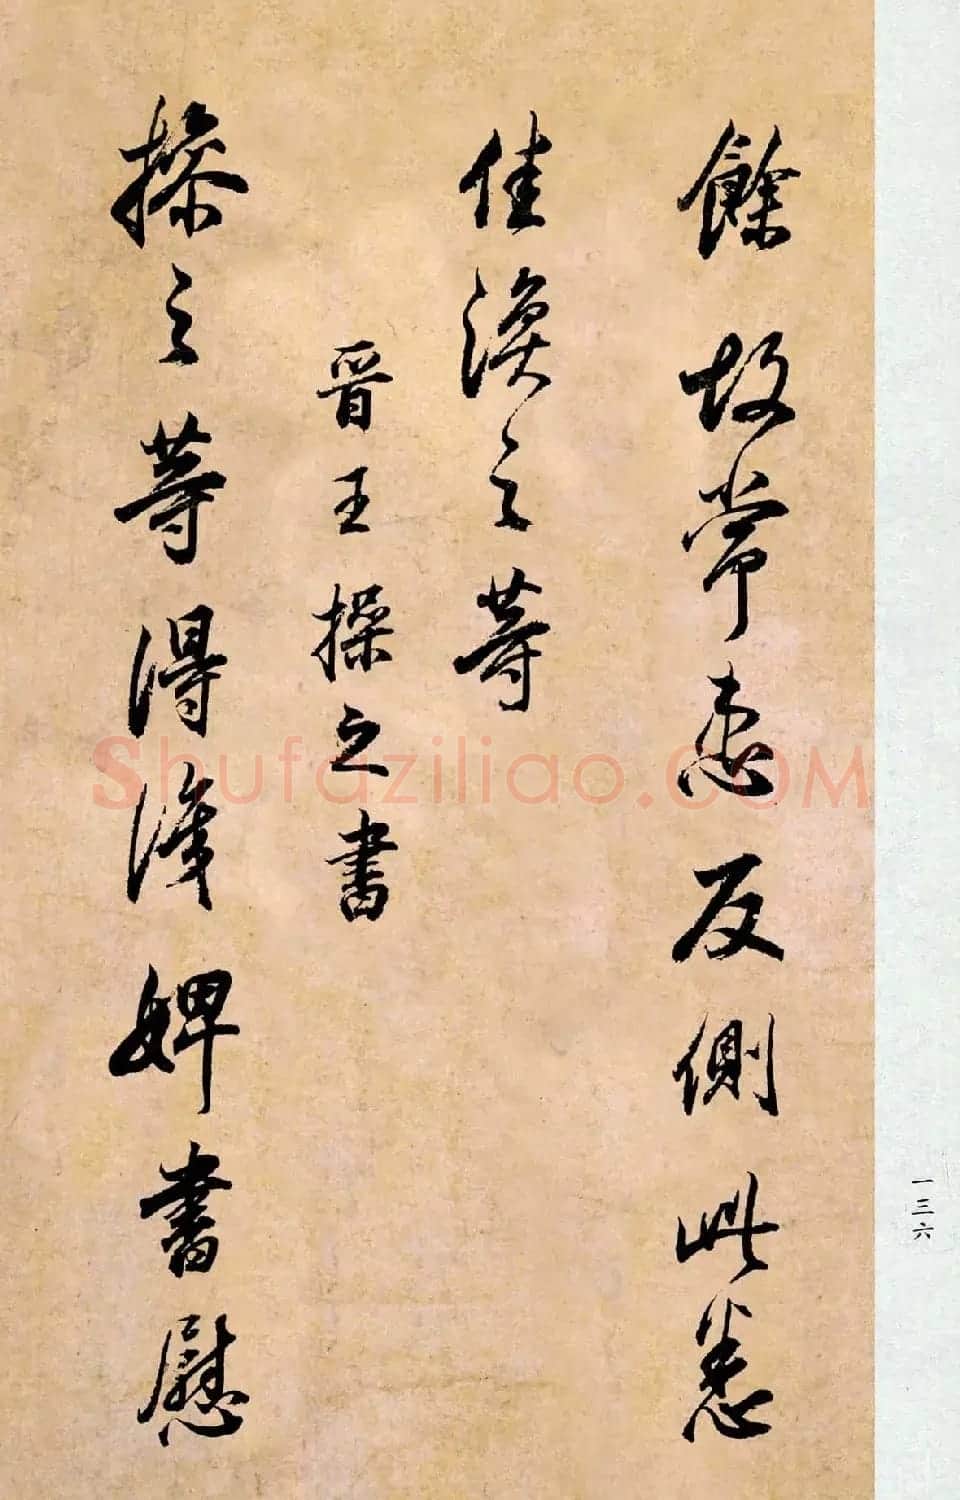 餘故常患反側此悉
佳渙之等
晉王操之書
操之等得濬婢書慰
一三六
Shufaziliao.COM